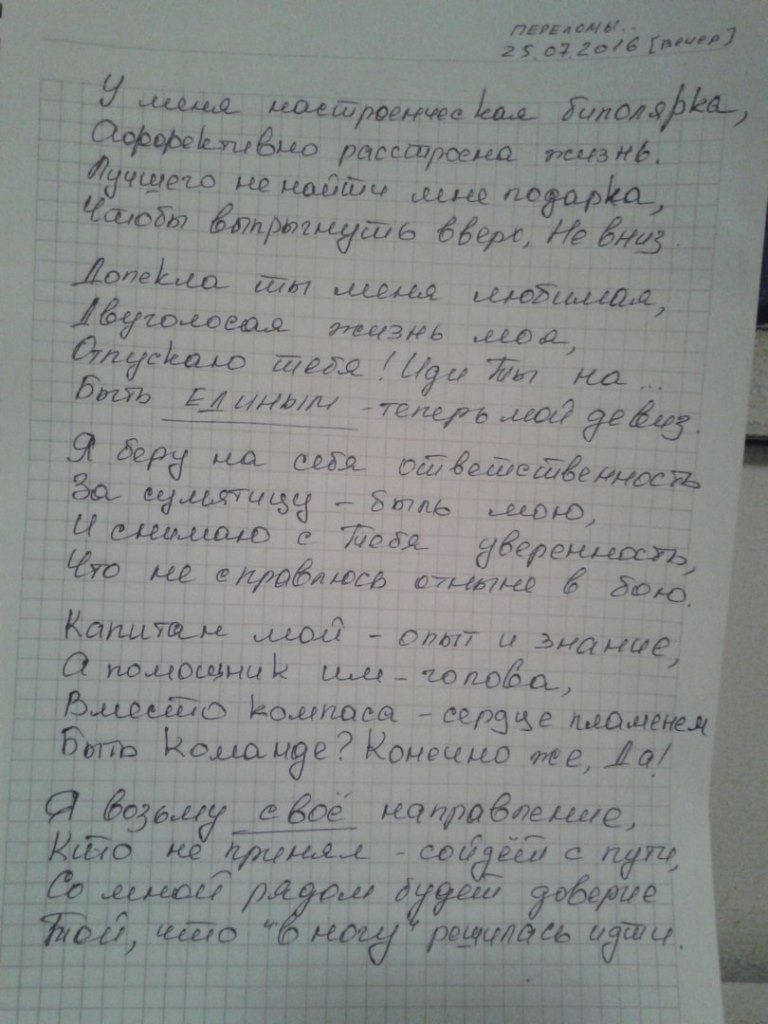 ПЕРЕЛОМЫ..
25.07.2016 [вечер]
У меня настроенческая биполярка,
Аффективно расстроена жизнь.
Лучшего не найти мне подарка,
Чтобы выпрыгнуть вверх, Не вниз.
Допекла ты меня любимая,
Двуголосая жизнь моя,
Отпускаю тебя! Иди Ты на...
Быть ЕДИНЫМ - теперь мой девиз.
Я беру на себя ответственность
За сумятицу - быль мою,
И снимаю с Тебя уверенность,
Что не справлюсь отныне в бою.
Капитан мой - опыт и знание,
А помощник им - голова,
Вместо компаса - сердце пламенем
Быть Команде? Конечно же, Да!
Я возьму своё направление,
Кто не принял - сойдёт с пути,
Со мной рядом будет доверие
Той, что "в ногу" решилась идти.